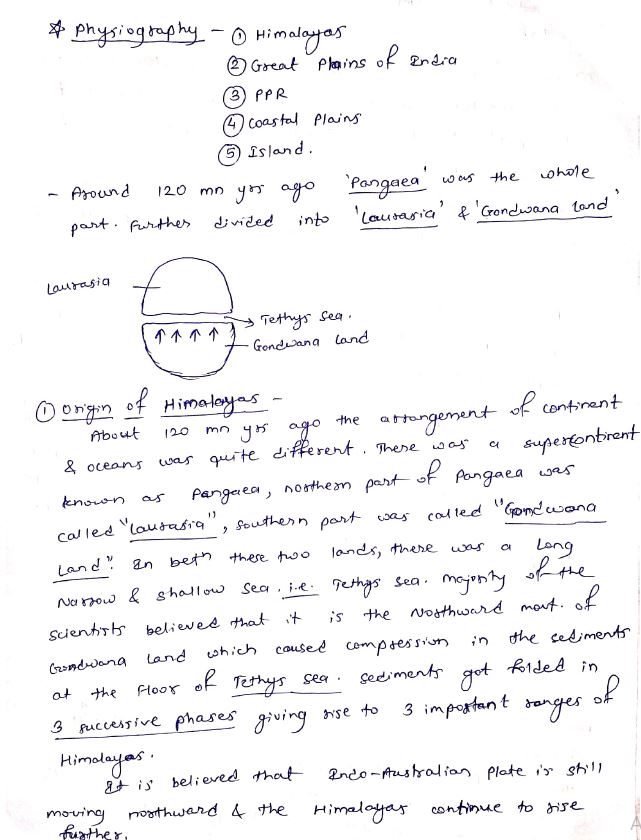 ☆ Physiography – ① Himalayas
② Great Plains of India
③ PPR
④ Coastal Plains
⑤ Island.
– Around 120 mn yrs ago 'Pangaea' was the whole
part. Further divided into 'Laurasia' & 'Gondwana land'
Laurasia
Tethys Sea.
Gondwana Land
① Origin of Himalayas –
About 120 mn yrs ago the arrangement of continent
& oceans was quite different. There was a supercontinent
known as Pangaea, northern part of Pangaea was
called "Laurasia", southern part was called "Gondwana
Land". In beth these two lands, there was a Long
Narrow & shallow sea. i.e. Tethys sea. majority of the
scientists believed that it is the Northward movt. of
Gondwana Land which caused compression in the sediments
at the Floor of Tethys Sea. sediments got folded in
3 successive phases giving rise to 3 important ranges of
Himalayas.
It is believed that Indo-Australian Plate is still
moving northward & the Himalayas continue to rise
further.